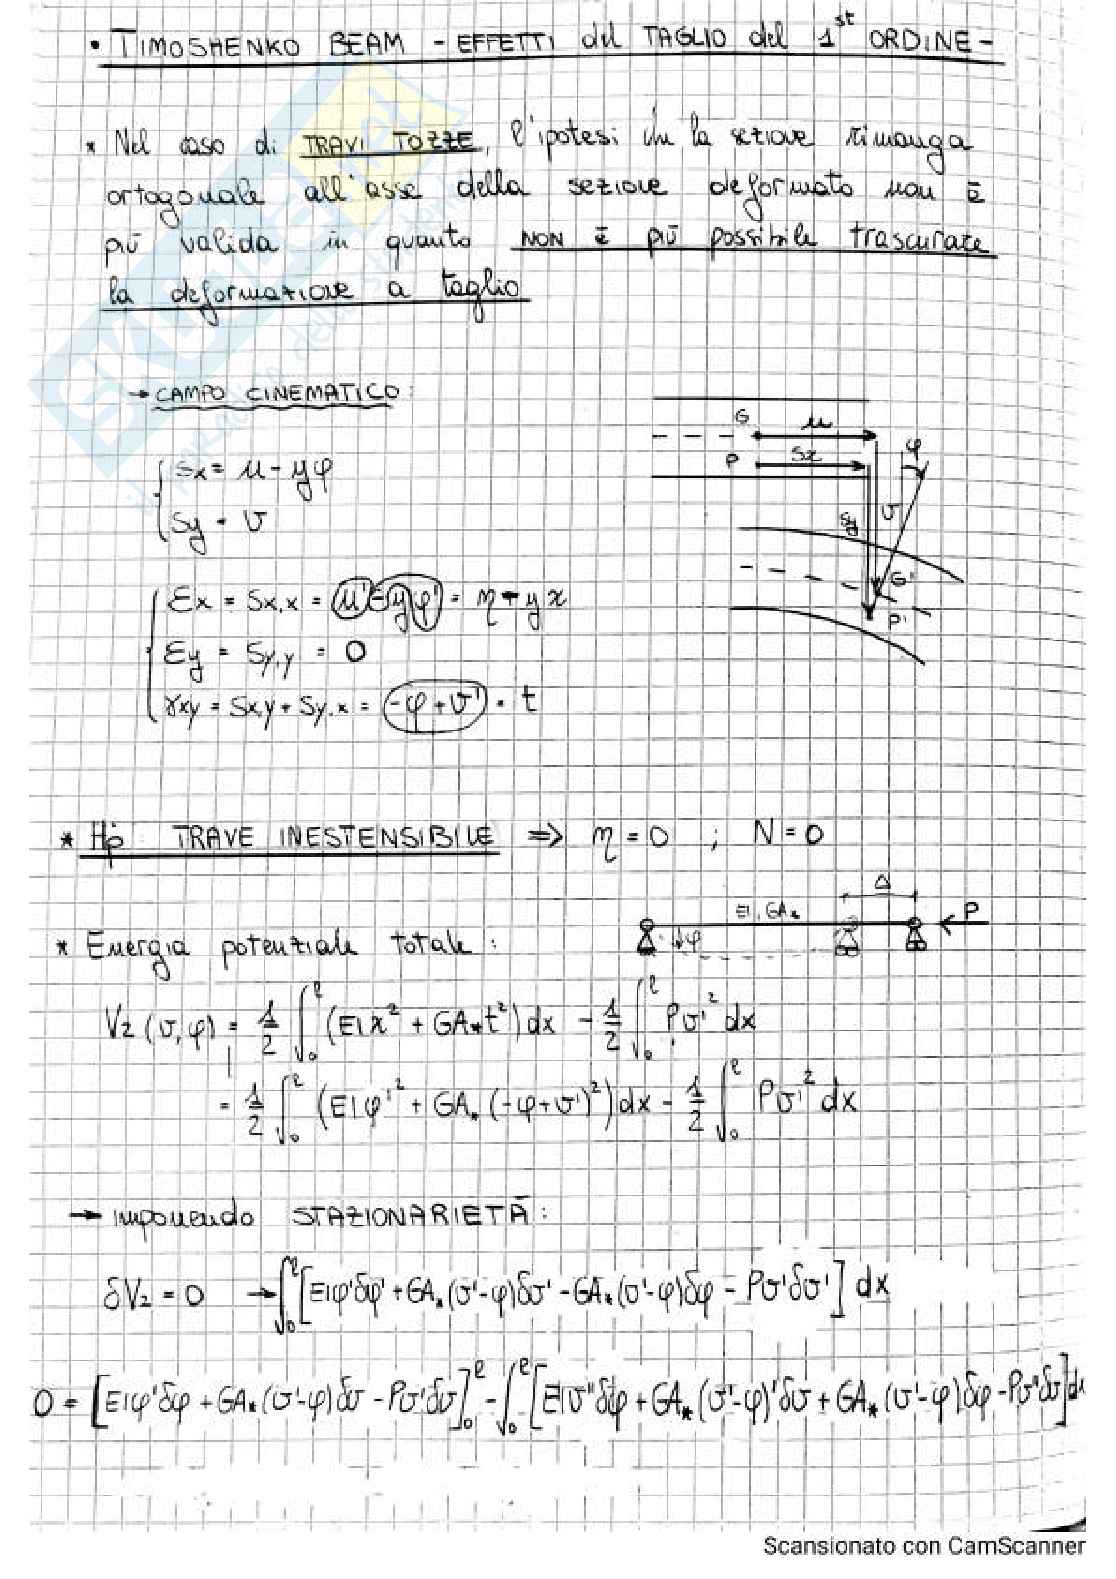 • TIMOSHENKO BEAM - EFFETTI del TAGLIO del 1st ORDINE -
* Nel caso di TRAVI TOZZE, l'ipotesi che la sezione rimanga
ortogonale all'asse della sezione deformato non è
più valida in quanto NON è più possibile trascurare
la deformazione a taglio
→ CAMPO CINEMATICO:
G u φ
P Sx
Sx = u - yφ
Sy = v
Sy v
G'
P'
εx = Sx,x = u' - yφ' = η + yχ
εy = Sy,y = 0
γxy = Sx,y + Sy,x = -φ + v' = t
* Hp TRAVE INESTENSIBILE => η = 0 ; N = 0
Δ
EI, GA* P
φ
* Energia potenziale totale:
V2 (v, φ) = 1/2 ∫₀^ℓ (EIχ² + GA*t²) dx - 1/2 ∫₀^ℓ Pv'² dx
= 1/2 ∫₀^ℓ (EIφ'² + GA* (-φ+v')²) dx - 1/2 ∫₀^ℓ Pv'² dx
→ imponendo STAZIONARIETÀ:
δV2 = 0 → ∫₀^ℓ [EIφ'δφ' + GA* (v'-φ)δv' - GA* (v'-φ)δφ - Pv'δv'] dx
0 = [EIφ'δφ + GA* (v'-φ)δv - Pv'δv]₀^ℓ - ∫₀^ℓ [EIv''δφ + GA* (v'-φ)'δv + GA* (v'-φ)δφ - Pv''δv] dx
Scansionato con CamScanner